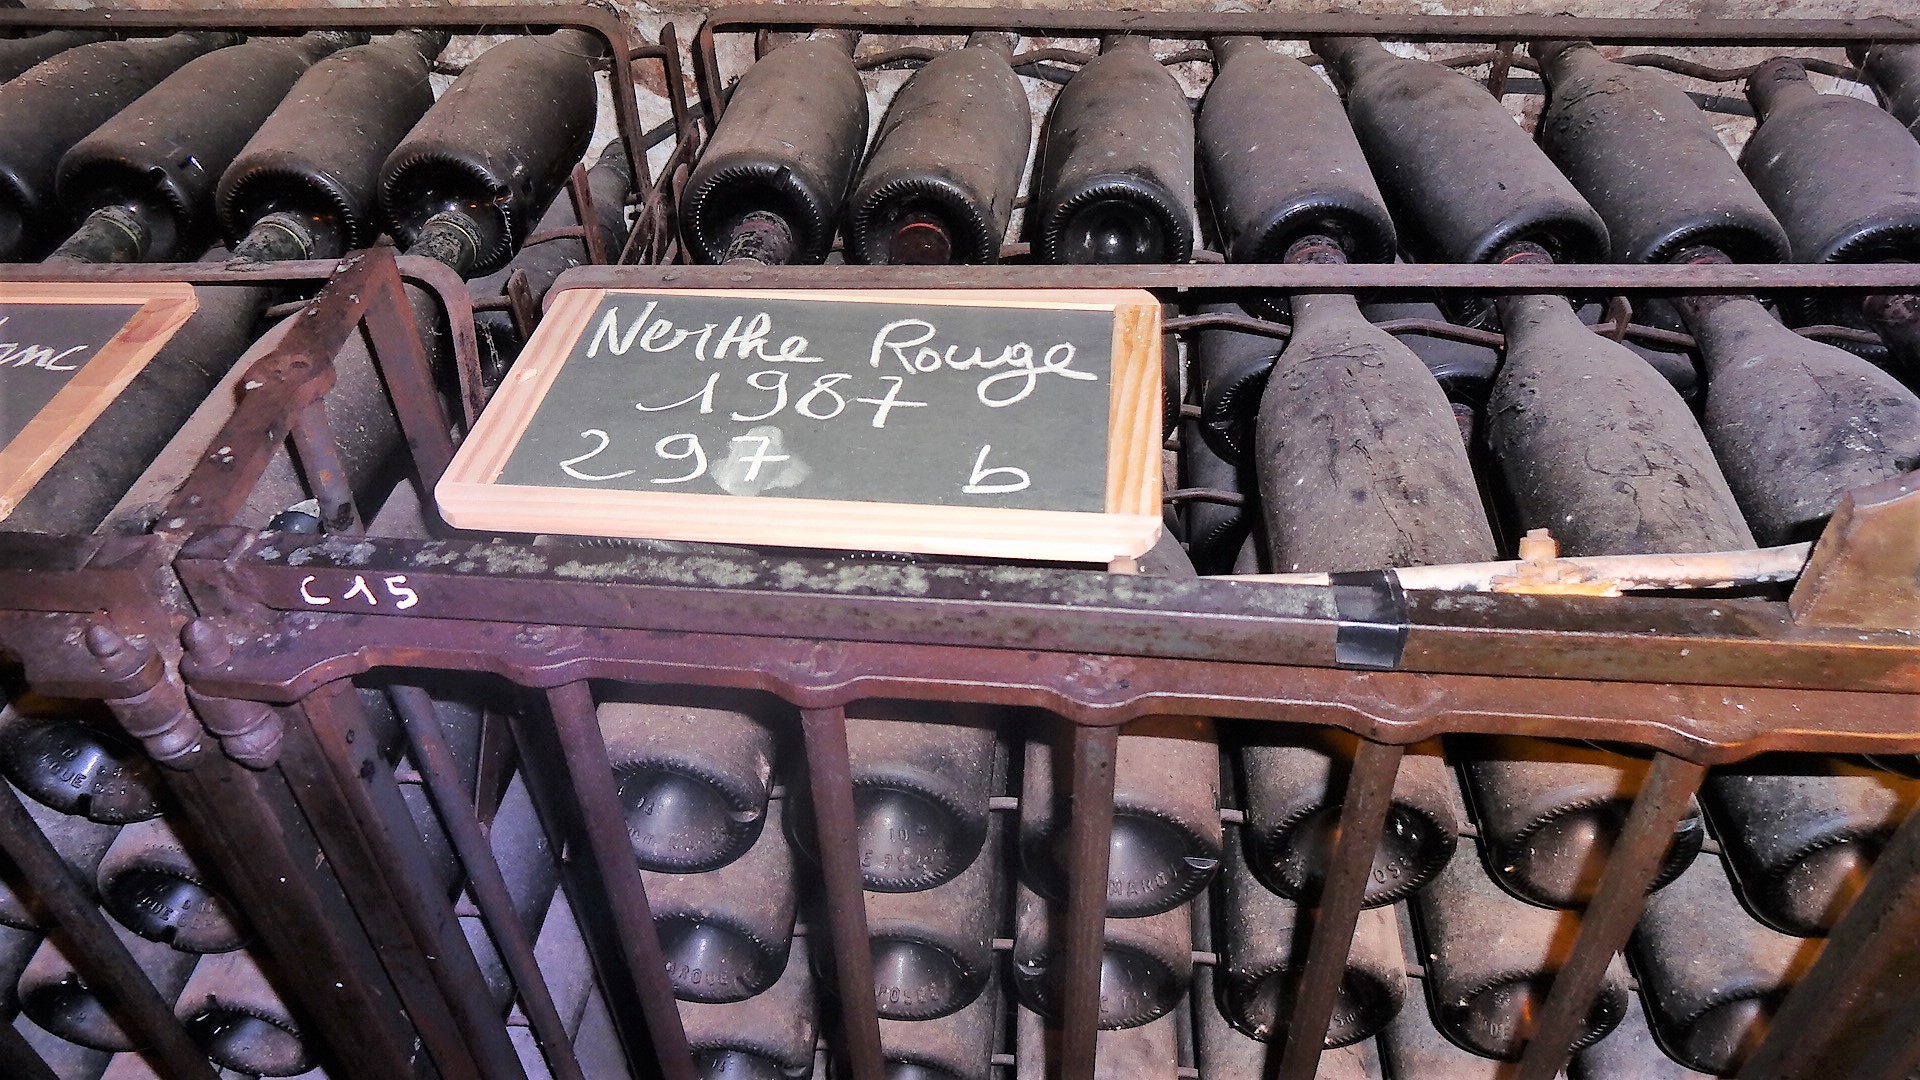 Nerthe Rouge
1987
297 b
C15